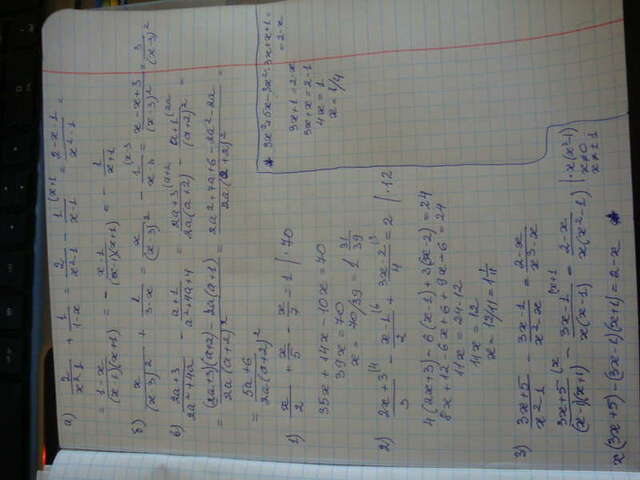 а) 2/(x²-1) + 1/(1-x) = 2/(x²-1) - 1/(x-1) (x+1 = (2-x-1)/(x²-1) =
= (1-x)/((x-1)(x+1)) = - (x-1)/((x-1)(x+1)) = - 1/(x+1)
б) x/(x-3)² + 1/(3-x) = x/(x-3)² - 1/(x-3) (x-3 = (x-x+3)/(x-3)² = 3/(x-3)²
в) (2a+3)/(2a²+4a) - (a+1)/(a²+4a+4) = (2a+3)/(2a(a+2)) (a+2 - (a+1)/(a+2)² (2a =
= ((2a+3)(a+2) - 2a(a+1))/(2a(a+2)²) = (2a²+7a+6-2a²-2a)/(2a(a+2)²) =
= (5a+6)/(2a(a+2)²)
1) x/2 + x/5 - x/7 = 1 | ·70
35x + 14x - 10x = 70
39x = 70
x = 70/39 = 1 31/39
2) (2x+3)/3 (4 - (x-1)/2 (6 + (3x-2)/4 (3 = 2 | ·12
4(2x+3) - 6(x-1) + 3(3x-2) = 24
8x + 12 - 6x + 6 + 9x - 6 = 24
11x = 24-12
11x = 12
x = 12/11 = 1 1/11
3) (3x+5)/(x²-1) - (3x-1)/(x²-x) = (2-x)/(x³-x)
(3x+5)/((x-1)(x+1)) (x - (3x-1)/(x(x-1)) (x+1 = (2-x)/(x(x²-1)) | ·x(x²-1)
x≠0
x≠±1
x(3x+5) - (3x-1)(x+1) = 2-x *
* 3x²+5x-3x²-3x+x+1 =
= 2-x
3x+1 = 2-x
3x+x = 2-1
4x = 1
x = 1/4